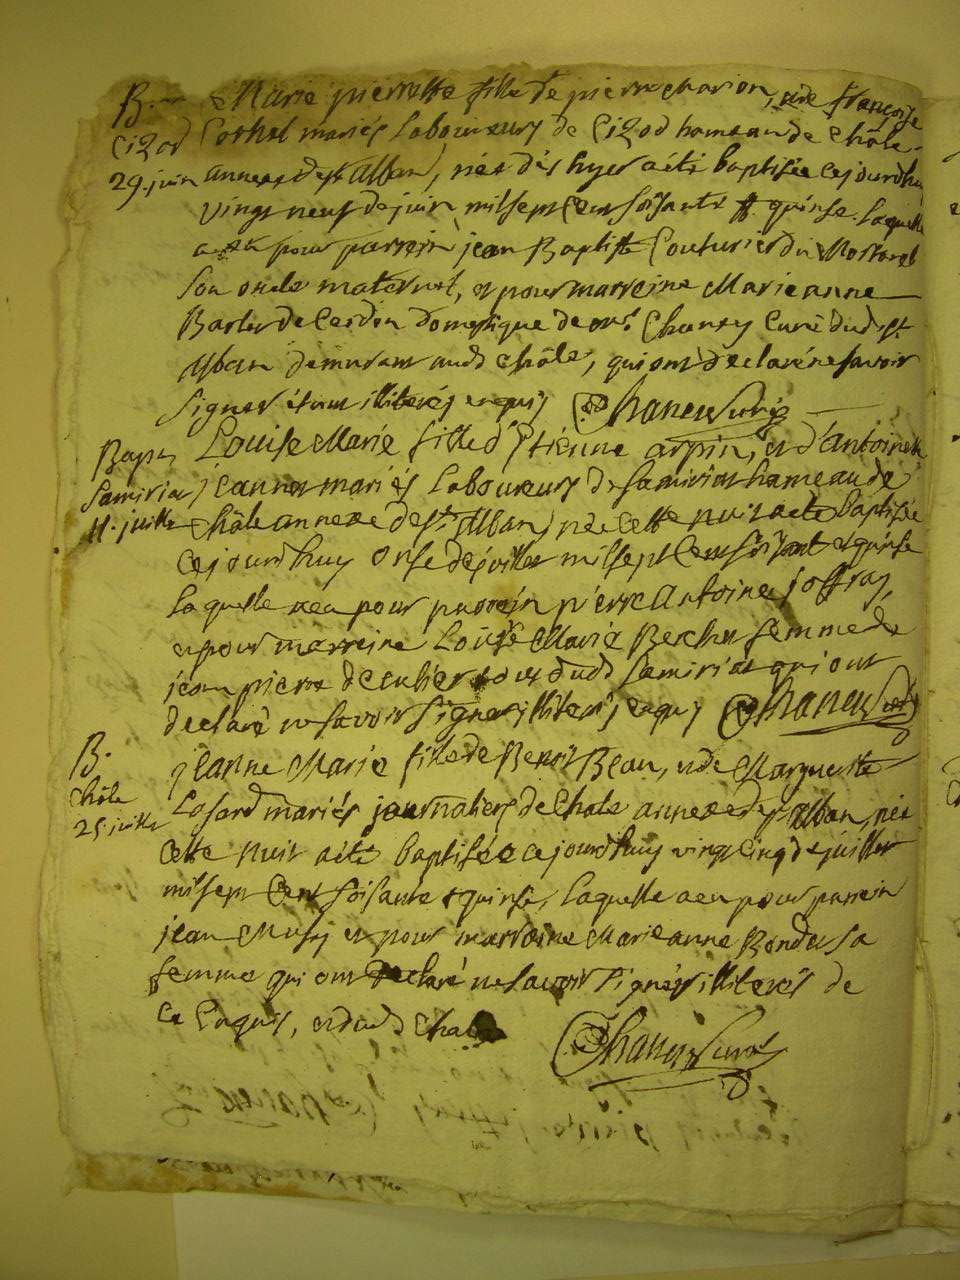 B.
Cizod
29. juin
Marie pierrette fille de pierre charion, et de françoise
Cothet mariés Laboureurs de Cizod hameau de Châle
annexe de st Alban, née dès hyer a été baptisée cejourdhuy
vingt neuf de juin mil sept cent soisante & quinse. Laquelle
a eu pour parrein jean Baptiste Couturier du
son oncle maternel, et pour marreine Marie anne
de Cerdon domestique de mr. Chaney Curé dud. st
Alban demeurant aud Châle, qui ont déclaré ne savoir
signer étant illiterés enquis Chaney Curé
Bapt.
Samiriat
11. juillet
Louise Marie fille d'Etienne arpin, et d'antoinette
jeannet mariés Laboureurs de Samiriat hameau de
Châle annexe de st. Alban, née cette nuit a été baptisée
cejourdhuy onse de juillet mil sept cent soisante et quinse
laquelle a eu pour parrein pierre Antoine joffray,
et pour marreine Louise Marie Berchet femme de
jean pierre tous dud Samiriat qui ont
declaré ne savoir signer illiterés enquis Chaney Curé
B.
Châle
25. juillet
jeanne Marie fille de Benoit Beau, et de Marguerite
Lafard mariés journaliers de Chale annexe de st alban, née
cette nuit a été baptisée cejourdhuy vingt cinq de juillet
mil sept cent soisante & quinse, laquelle a eu pour parrein
jean et pour marraine Marie anne sa
femme qui ont declaré ne savoir signer illiterés de
ce Enquis, et dud Chale
Chaney Curé